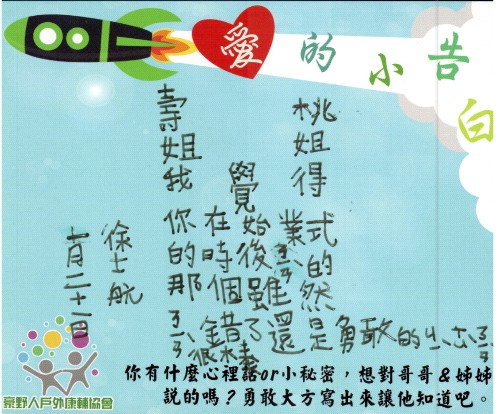 愛的小告白
桃姐得式的然是
業還
覺始後雖了
在時個錯
很棒
壽姐我你的那
勇敢的小
徐士航
月二十二日
豪野人戶外康輔協會
你有什麼心裡話or小秘密，想對哥哥&姊姊
說的嗎？勇敢大方寫出來讓他知道吧。